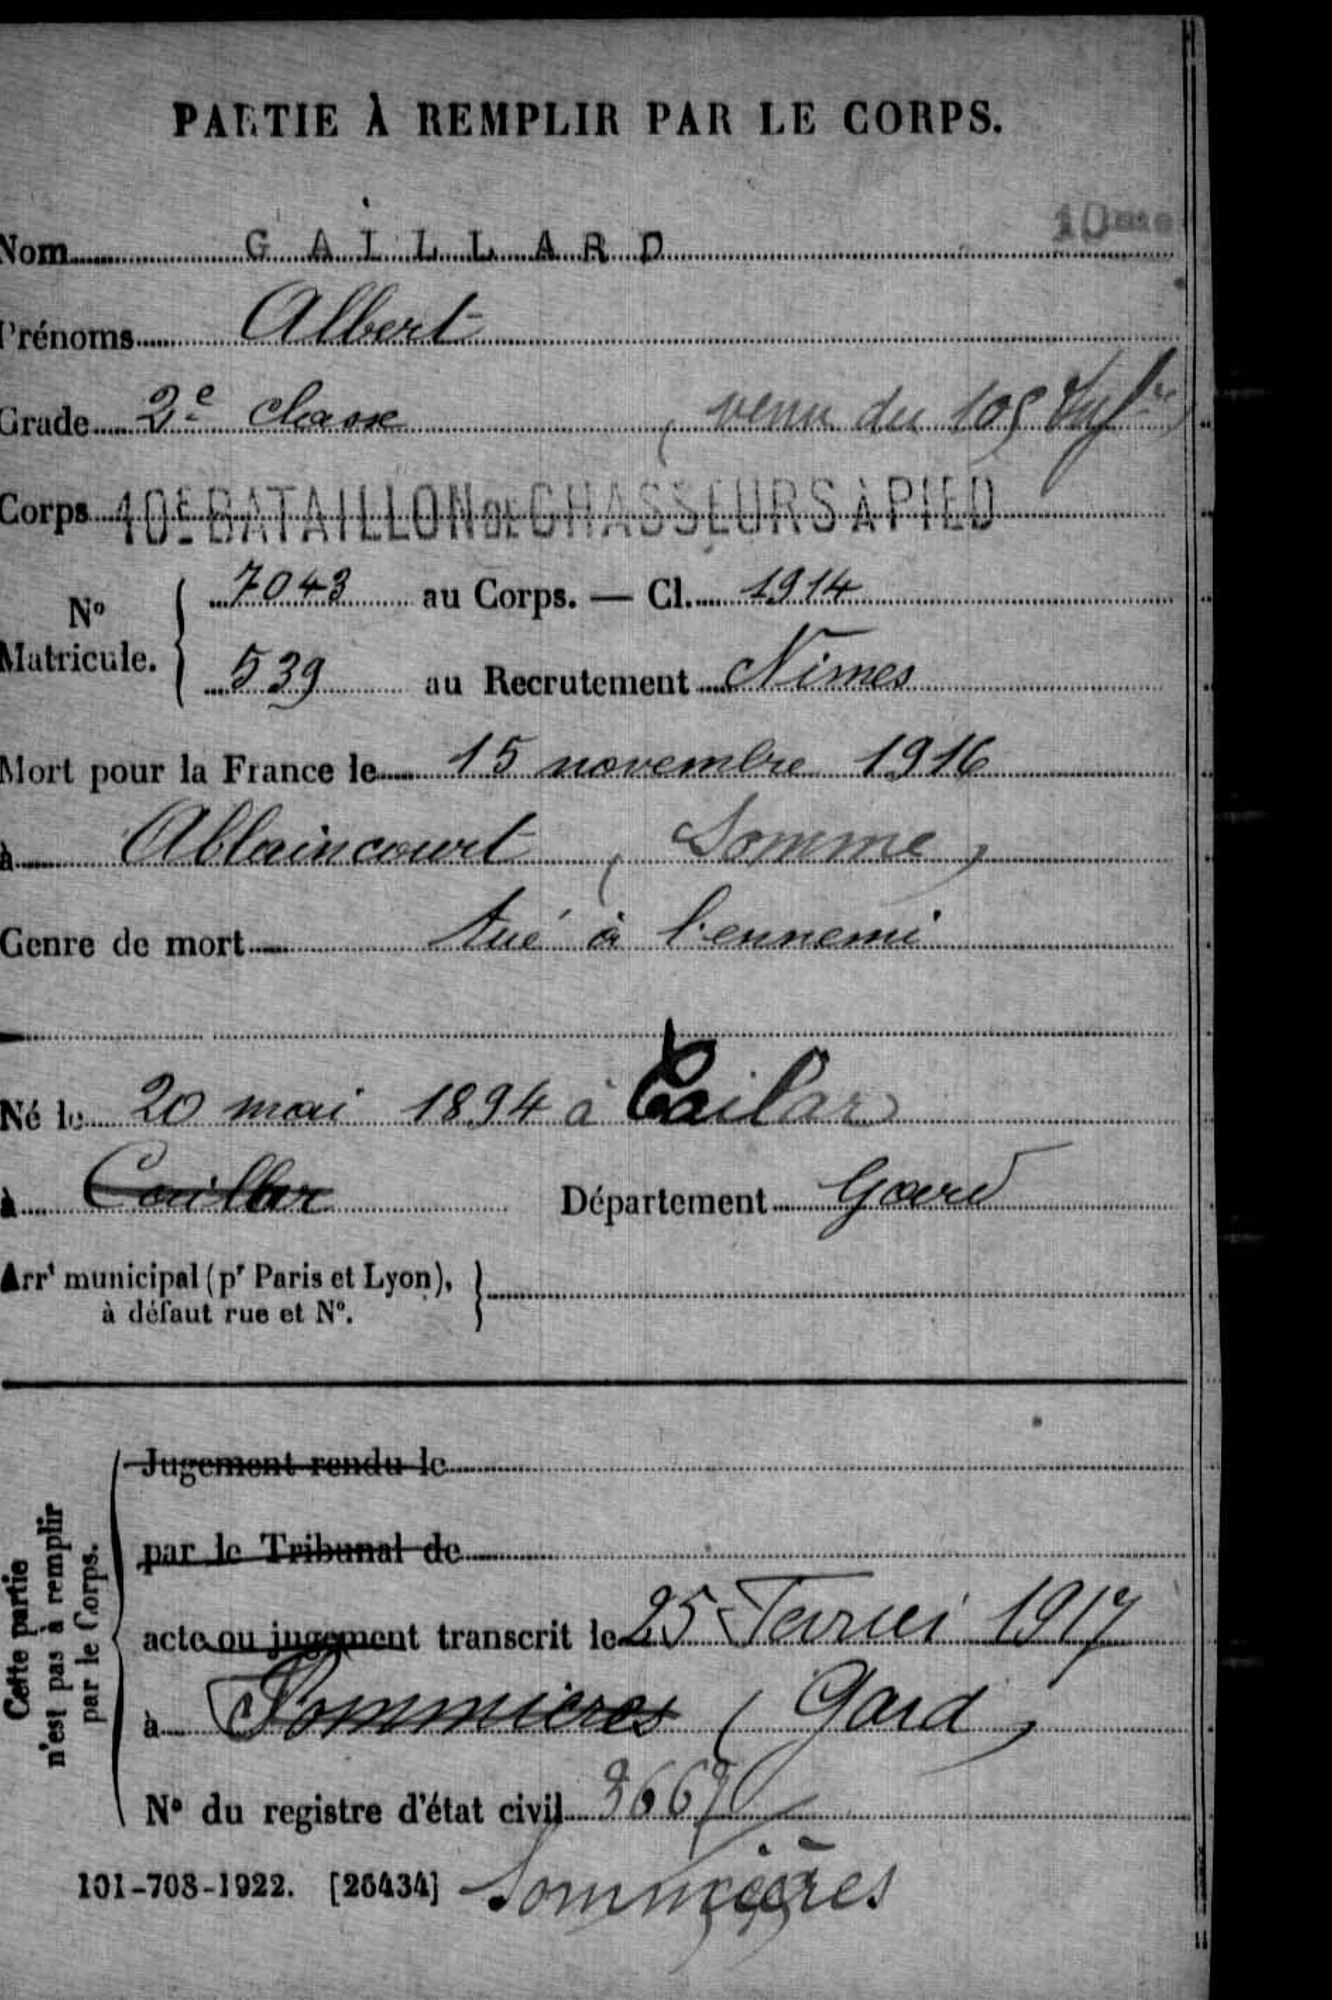 PARTIE À REMPLIR PAR LE CORPS.
10me
Nom GAILLARD
Prénoms Albert
Grade 2e classe (venu du 105 Infie)
Corps 10E BATAILLON DE CHASSEURS À PIED
No Matricule. { 7043 au Corps. — Cl. 1914
539 au Recrutement Nimes
Mort pour la France le 15 novembre 1916
à Ablaincourt (Somme)
Genre de mort tué à l'ennemi
Né le 20 mai 1894 à Cailar
à Caillar Département Gard
Arrt municipal (pr Paris et Lyon),
à défaut rue et N°.
Cette partie
n'est pas à remplir
par le Corps.
Jugement rendu le
par le Tribunal de
acte ou jugement transcrit le 25 Février 1917
à Sommières (Gard)
N° du registre d'état civil
101-708-1922. [26434] Sommières